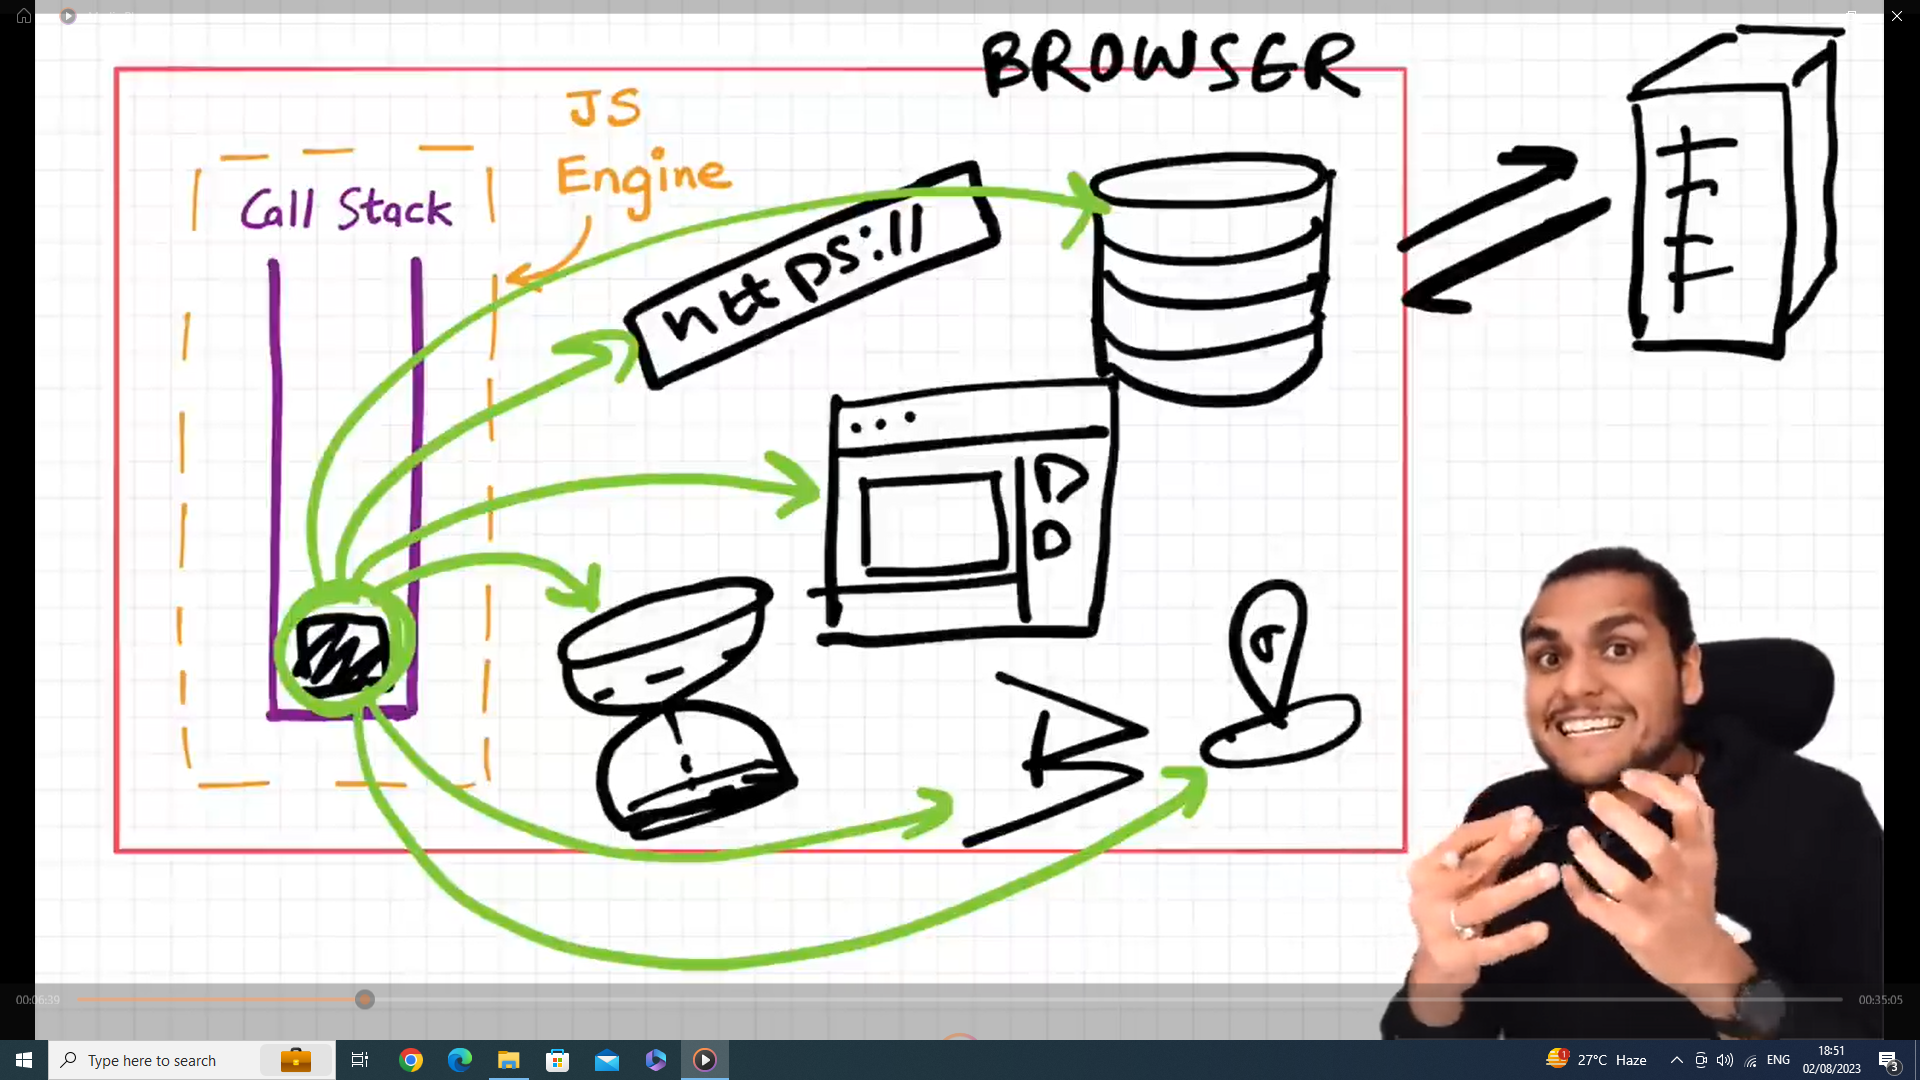 BROWSER
JS
Engine
Call Stack
https://
00:06:39
00:35:05
Type here to search
1
27°C Haze
ENG
18:51
02/08/2023
3